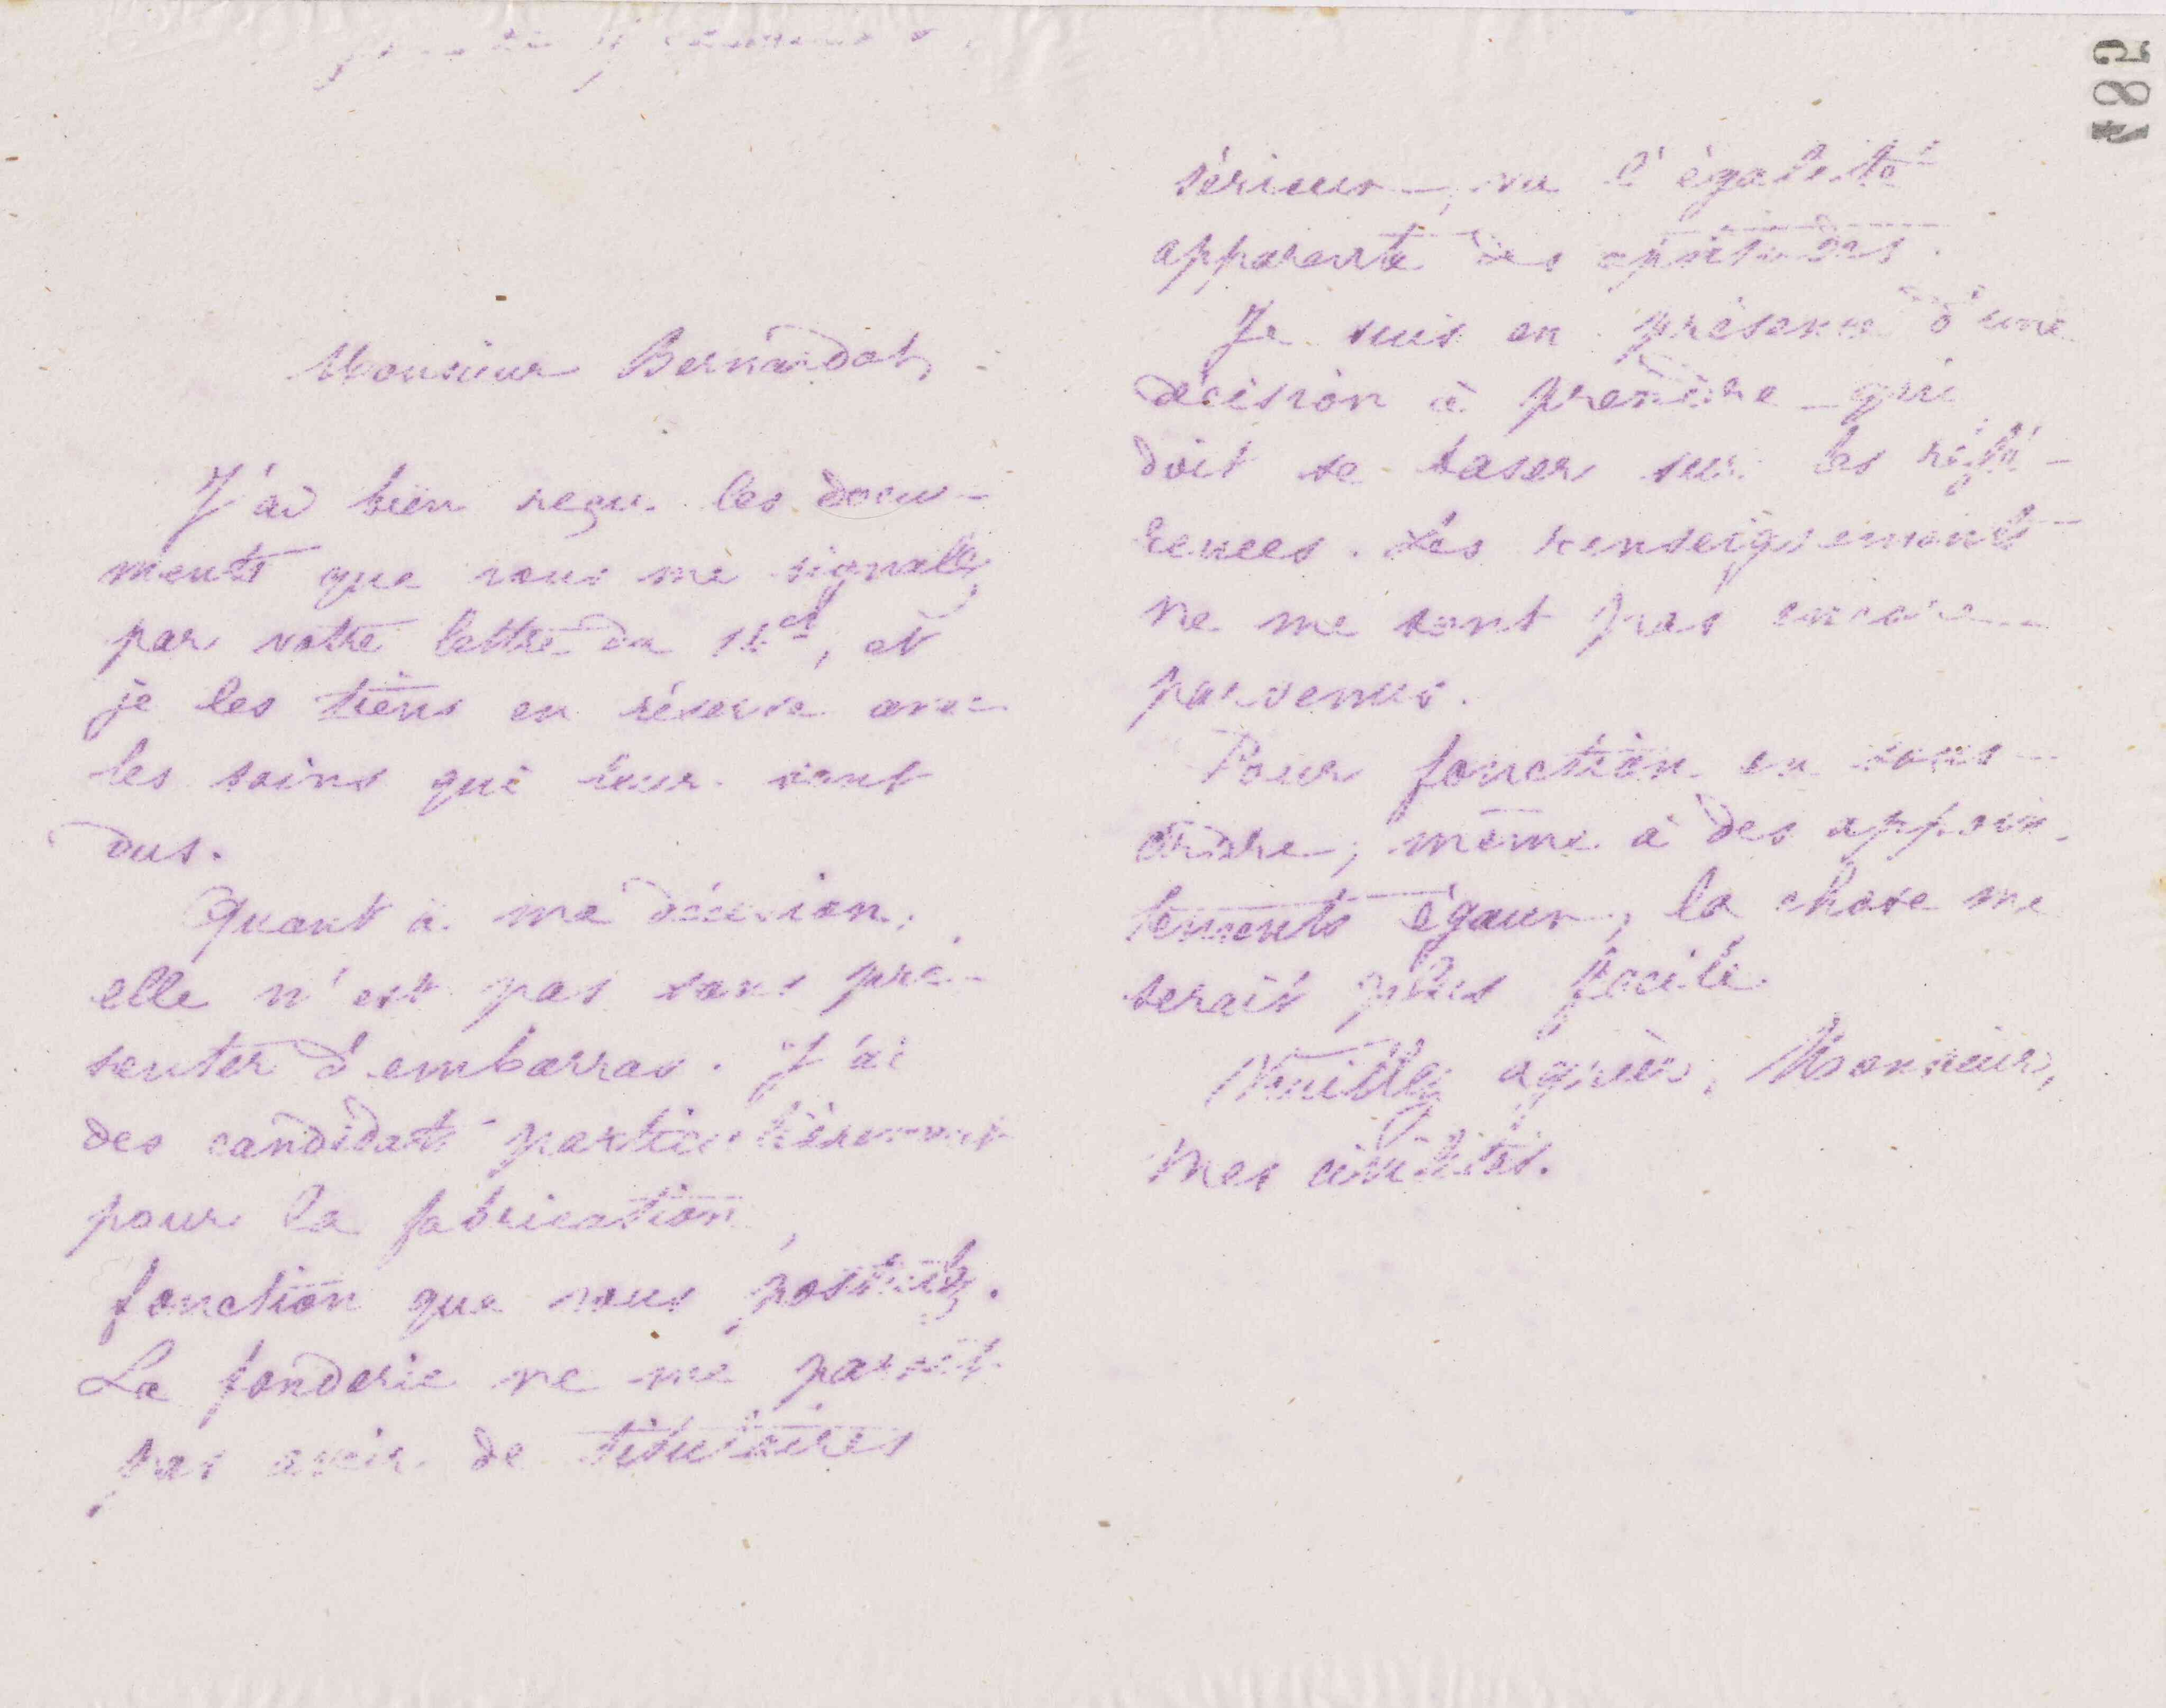 Monsieur Bernardot,
J'ai bien reçu les docu-
ments que vous me signalez
par votre lettre du 14 ct, et
je les tiens en réserve avec
les soins qui leur sont
dus.
Quant à ma décision,
elle n'est pas sans pré-
senter d'embarras. J'ai
des candidats particulièrement
pour la fabrication,
fonction que vous postulez.
La fonderie ne me paraît
pas avoir de titulaires
sérieux, vu l'égalité
apparente des aptitudes.
Je suis en présence d'une
décision à prendre qui
doit se baser sur les réfé-
rences. Les renseignements
ne me sont pas encore
parvenus.
Pour fonction en sous-
ordre, même à des appoin-
tements égaux, la chose me
serait plus facile.
Veuillez agréer, Monsieur,
mes civilités.
487